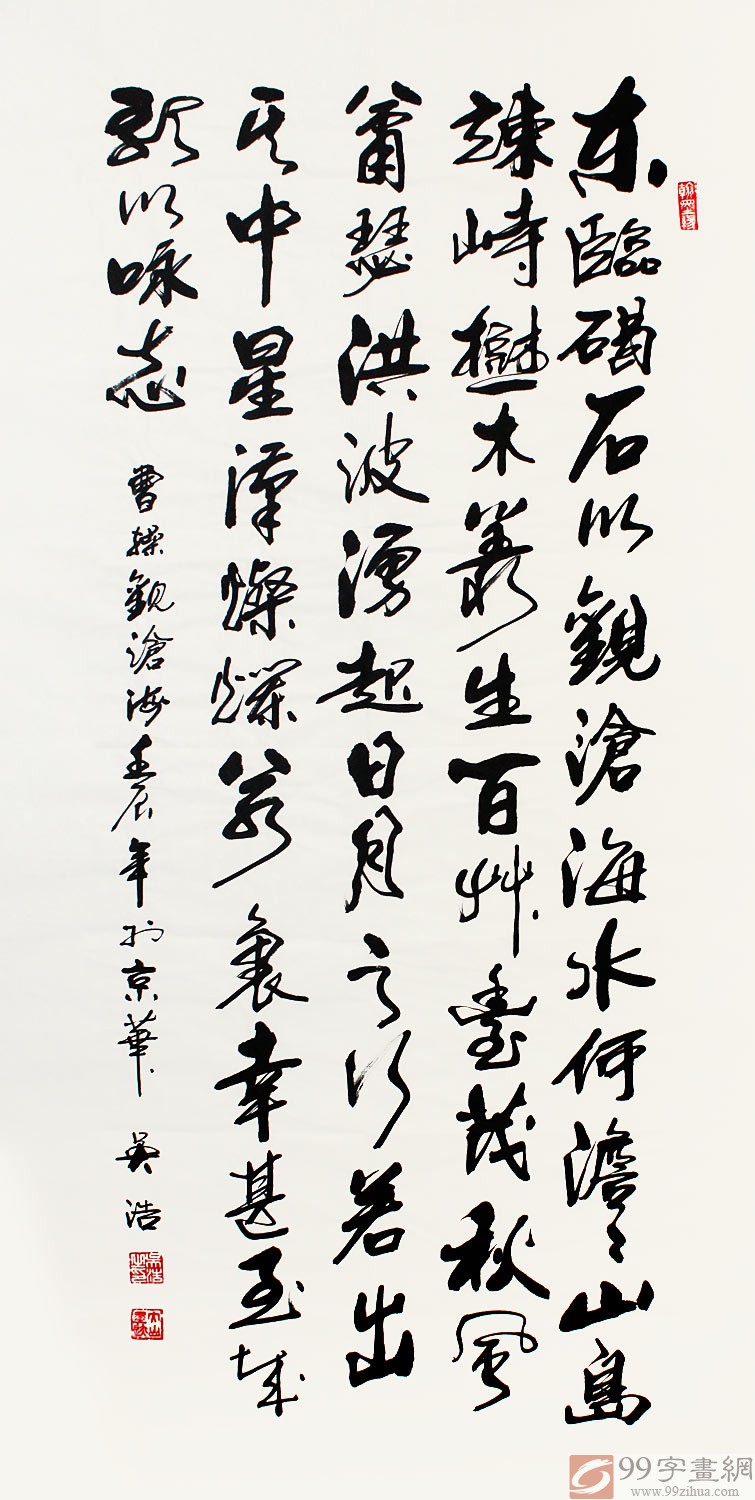 东臨碣石以觀滄海水何澹〻山島
竦峙樹木叢生百艸豐茂秋風
蕭瑟洪波湧起日月之行若出
其中星漢燦爛若裏幸甚至哉
歌以咏志 曹操觀滄海壬辰年於京華 吳浩
99字畫網
www.99zihua.com